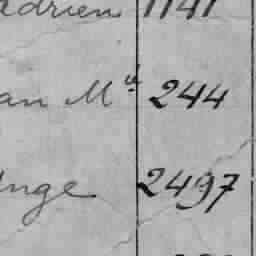 adrien 1141
an M^ie 244
Ange 2497